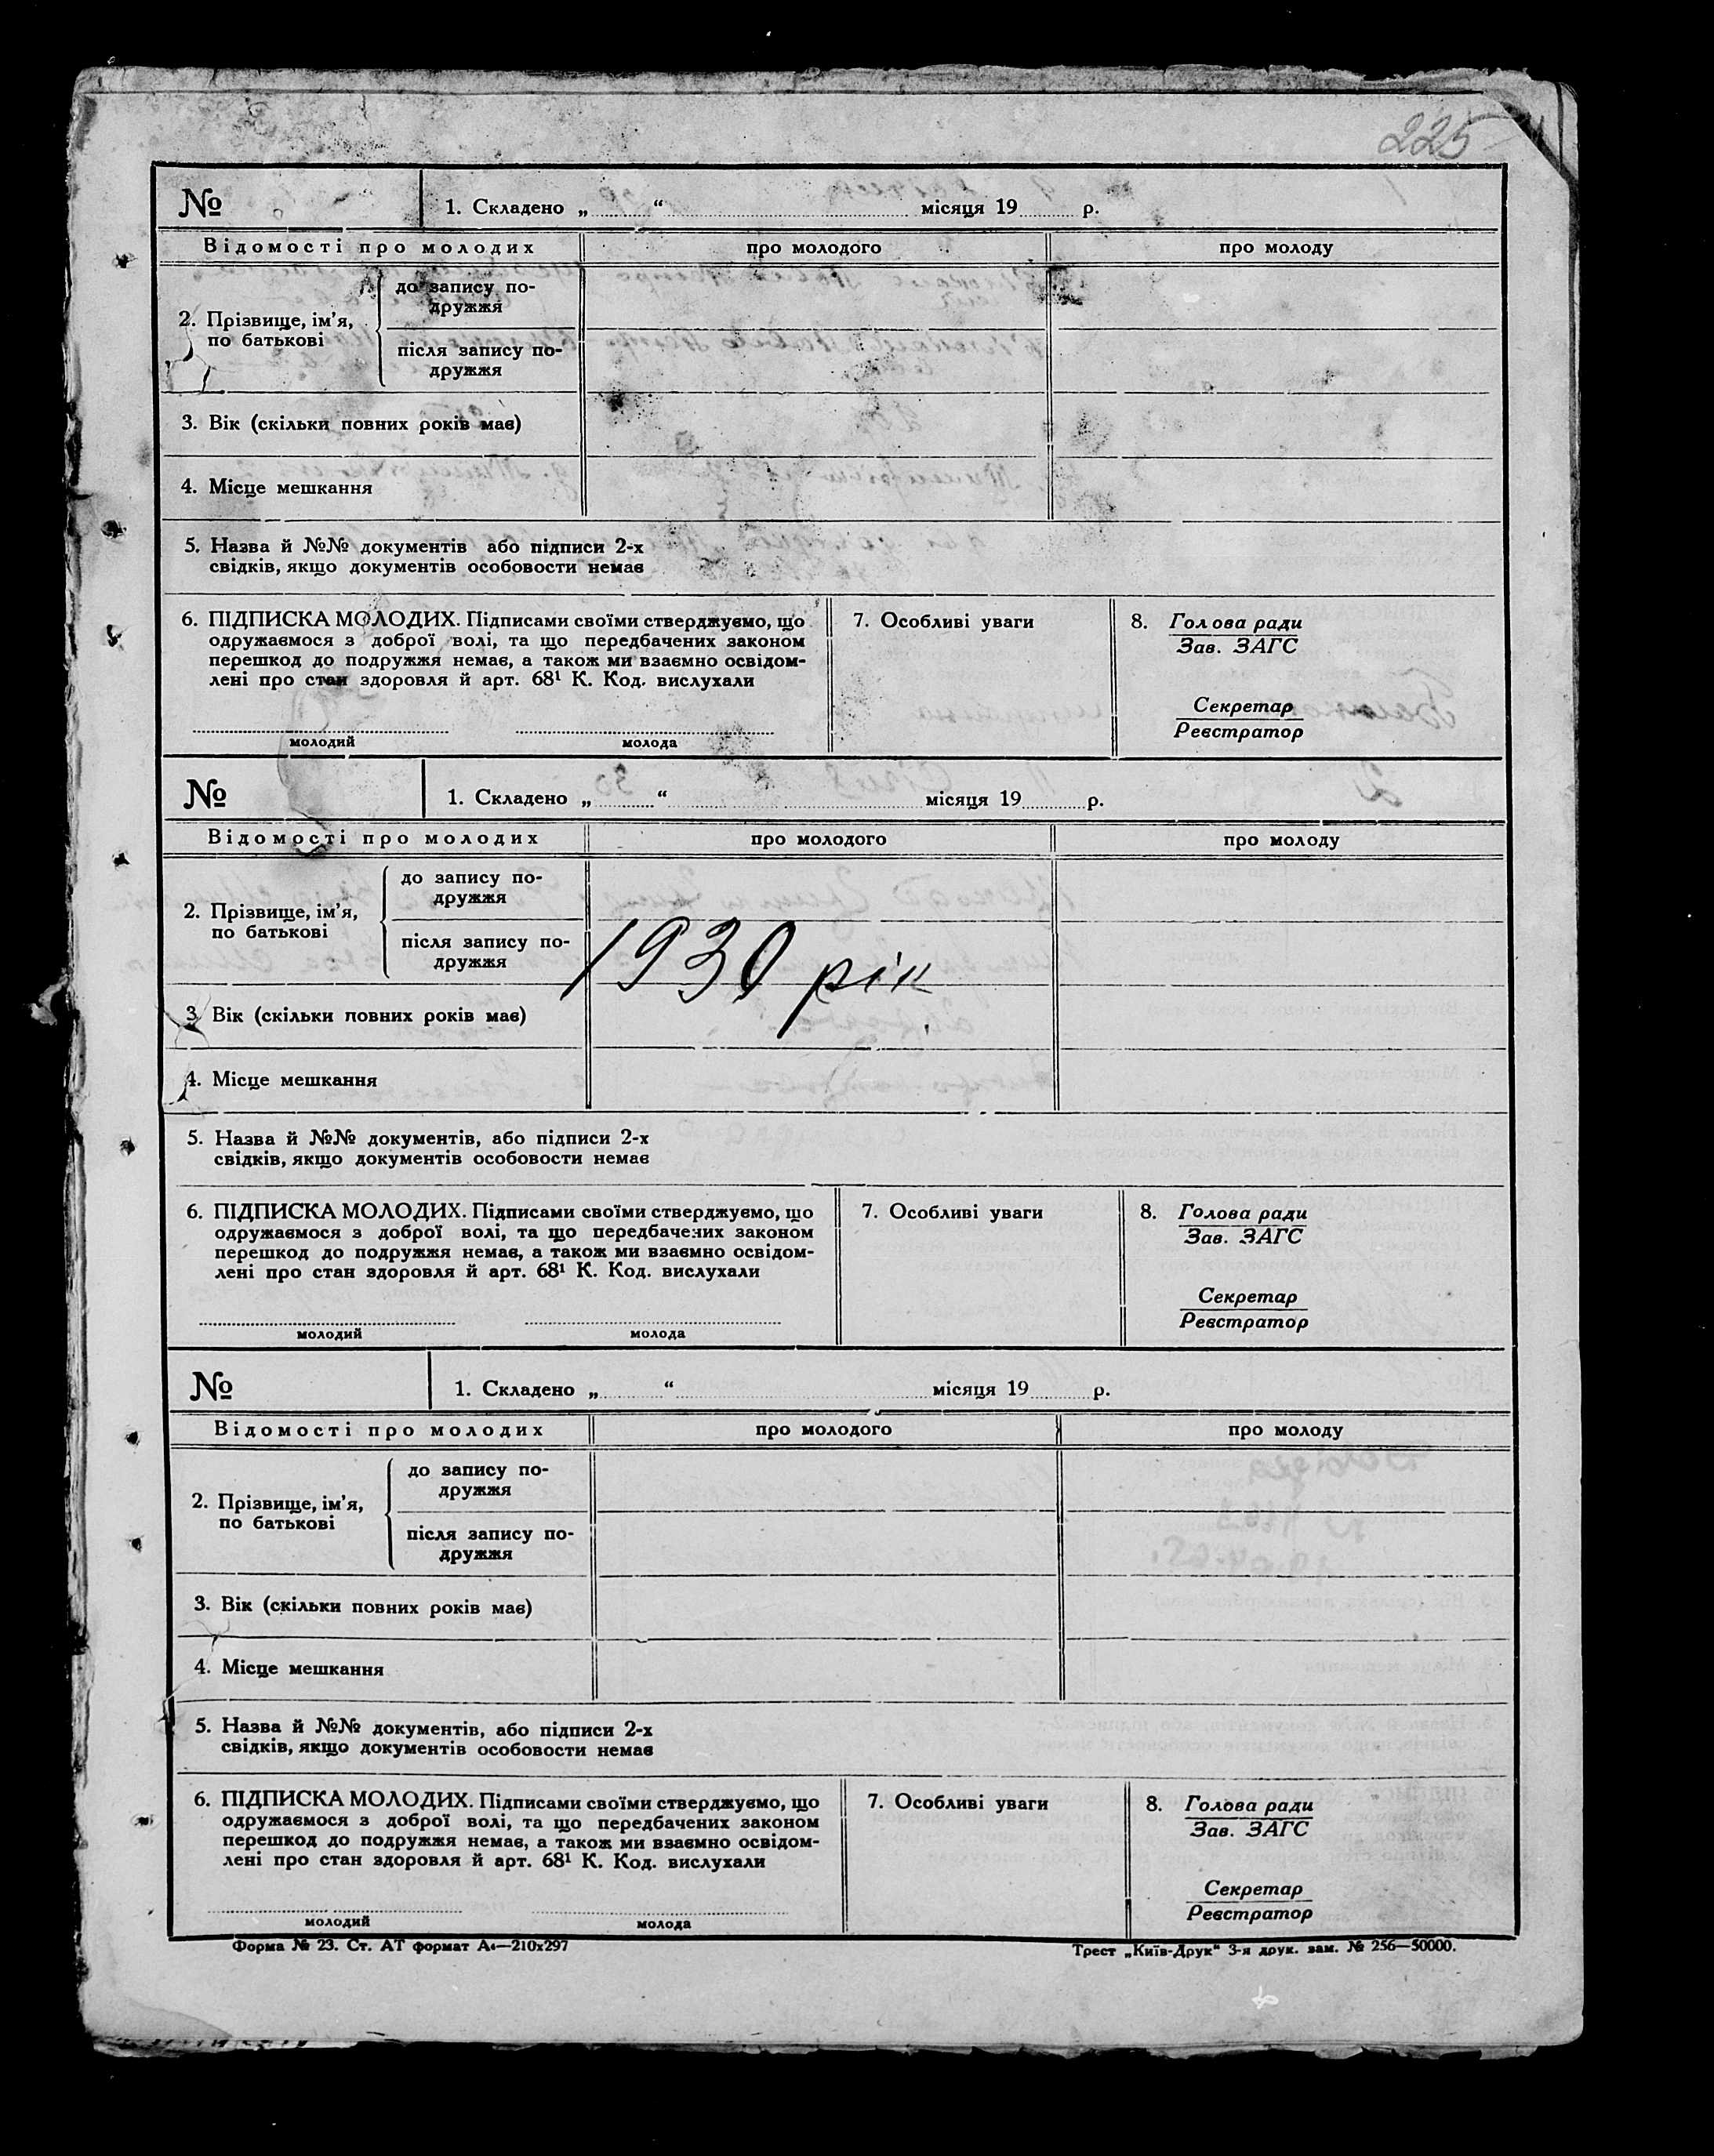 225
№ 1. Складено „ “ місяця 19 р.
Відомості про молодих про молодого про молоду
2. Прізвище, ім’я, по батькові
до запису по-
дружжя
після запису по-
дружжя
3. Вік (скільки повних років має)
4. Місце мешкання
5. Назва й №№ документів або підписи 2-х
свідків, якщо документів особовости немає
6. ПІДПИСКА МОЛОДИХ. Підписами своїми стверджуємо, що
одружаємося з доброї волі, та що передбачених законом
перешкод до подружжя немає, а також ми взаємно освідом-
лені про стан здоровля й арт. 68¹ К. Код. вислухали
молодий молода
7. Особливі уваги
8. Голова ради
Зав. ЗАГС
Секретар
Реєстратор
№ 1. Складено „ “ місяця 19 р.
Відомості про молодих про молодого про молоду
2. Прізвище, ім’я, по батькові
до запису по-
дружжя
після запису по-
дружжя
1930 рік
3. Вік (скільки повних років має)
4. Місце мешкання
5. Назва й №№ документів, або підписи 2-х
свідків, якщо документів особовости немає
6. ПІДПИСКА МОЛОДИХ. Підписами своїми стверджуємо, що
одружаємося з доброї волі, та що передбачених законом
перешкод до подружжя немає, а також ми взаємно освідом-
лені про стан здоровля й арт. 68¹ К. Код. вислухали
молодий молода
7. Особливі уваги
8. Голова ради
Зав. ЗАГС
Секретар
Реєстратор
№ 1. Складено „ “ місяця 19 р.
Відомості про молодих про молодого про молоду
2. Прізвище, ім’я, по батькові
до запису по-
дружжя
після запису по-
дружжя
3. Вік (скільки повних років має)
4. Місце мешкання
5. Назва й №№ документів, або підписи 2-х
свідків, якщо документів особовости немає
6. ПІДПИСКА МОЛОДИХ. Підписами своїми стверджуємо, що
одружаємося з доброї волі, та що передбачених законом
перешкод до подружжя немає, а також ми взаємно освідом-
лені про стан здоровля й арт. 68¹ К. Код. вислухали
молодий молода
7. Особливі уваги
8. Голова ради
Зав. ЗАГС
Секретар
Реєстратор
Форма № 23. Ст. АТ формат А₄—210х297 Трест „Київ-Друк“ 3-я друк. зам. № 256—50000.